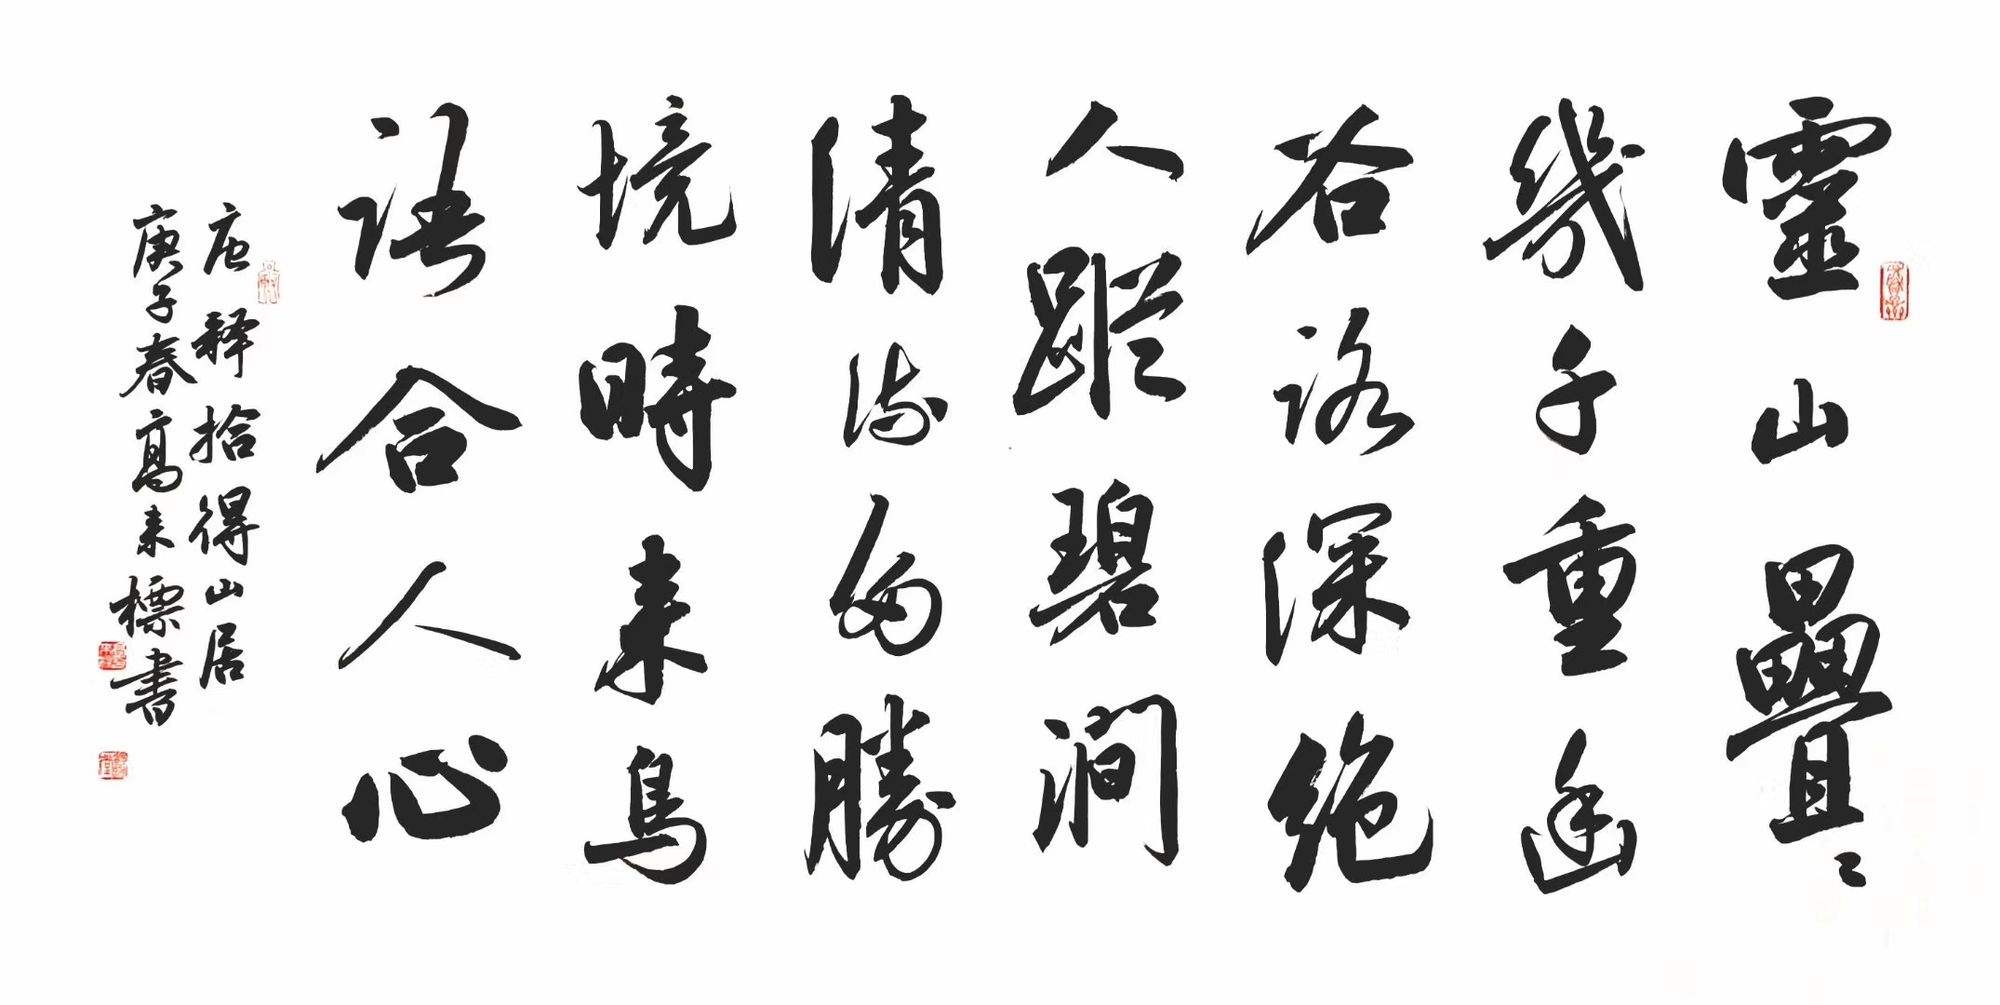 靈山疊々
幾千重幽
谷路深絕
人蹤碧澗
清流多勝
境時来鳥
語合人心
唐釋拾得山居
庚子春高来標書